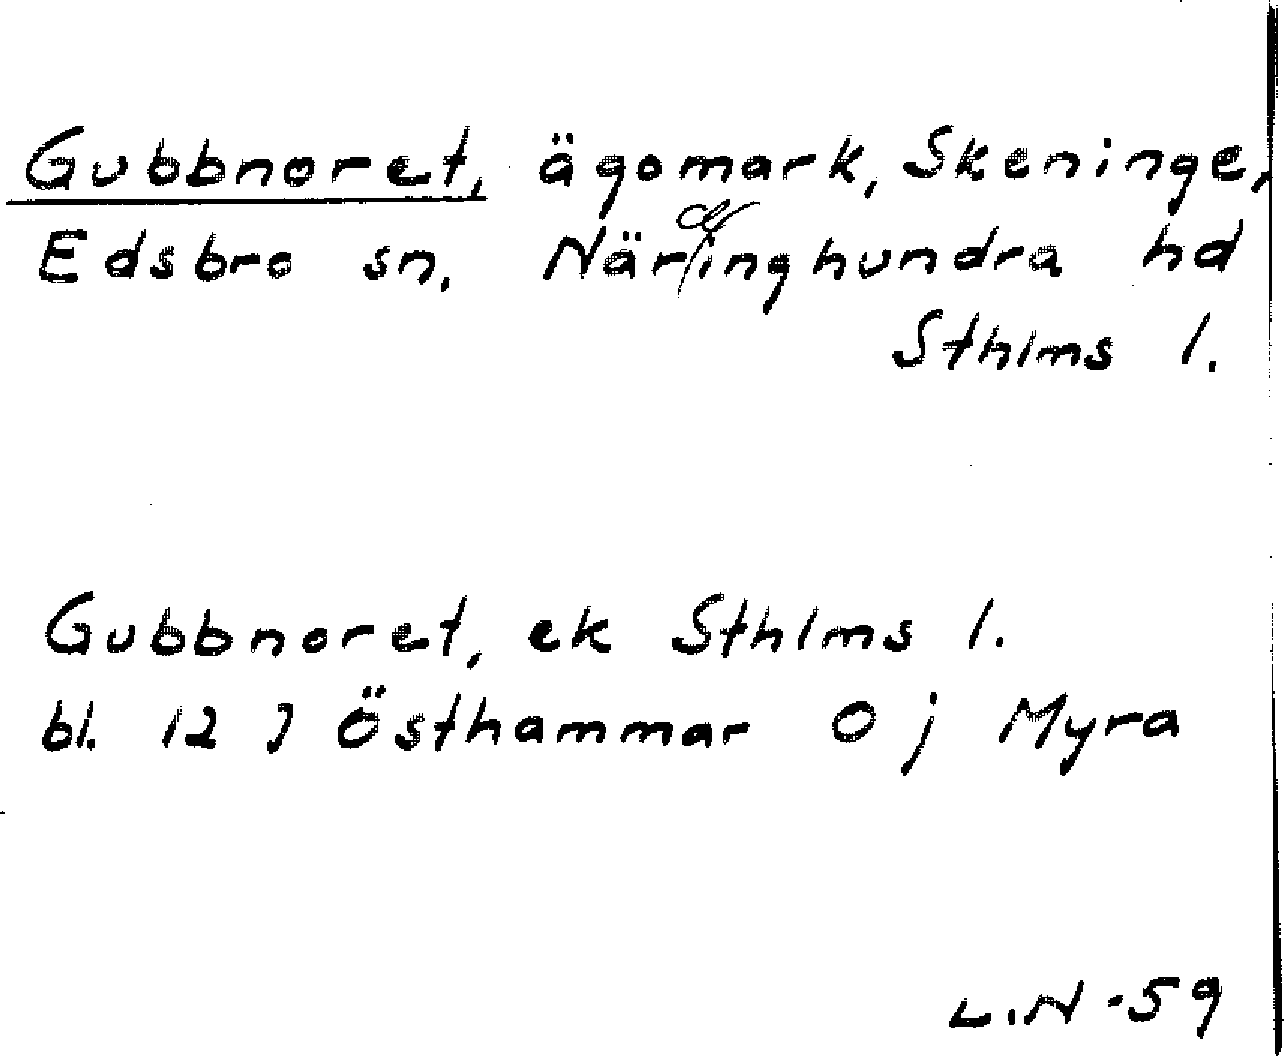 Gubbnoret, ägomark, Skeninge,
Edsbro sn. Närdinghundra hd
Sthlms l.
Gubbnoret, ek Sthlms l.
bl. 12 J Östhammar O j Myra
L.N -59